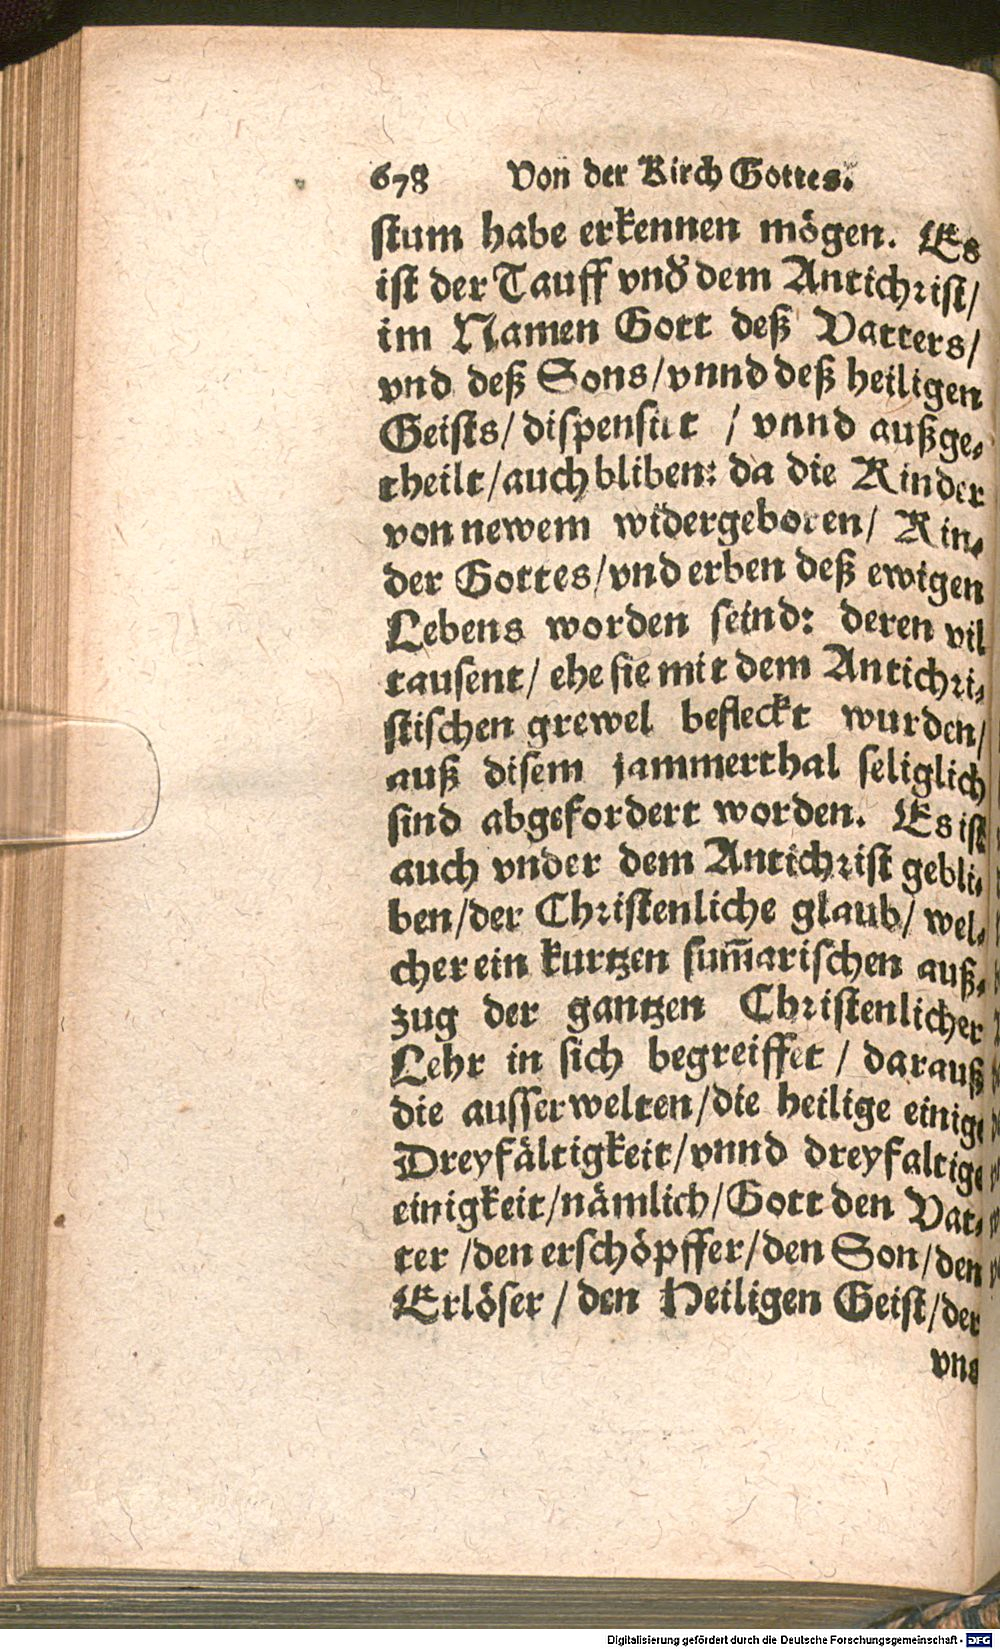 678 Von der Kirch Gottes.
stum habe erkennen mögen. Es
ist der Tauff vnd dem Antichrist/
im Namen Gott deß Vatters/
vnd deß Sons/vnnd deß heiligen
Geists/dispensirt / vnnd außge-
theilt/auch bliben: da die Kinder
von newem widergeboren/ Kin-
der Gottes/vnd erben deß ewigen
Lebens worden seind: deren vil
tausent/ ehe sie mit dem Antichri-
stischen grewel befleckt wurden/
auß disem jammerthal seliglich
sind abgefordert worden. Es ist
auch vnder dem Antichrist gebli-
ben/der Christenliche glaub/ wel-
cher ein kurtzen sum̃arischen auß-
zug der gantzen Christenlicher
Lehr in sich begreiffet / darauß
die ausserwelten/die heilige einige
Dreyfältigkeit/vnnd dreyfaltige
einigkeit/nämlich/Gott den Vat-
ter /den erschöpffer/den Son/den
Erlöser / den Heiligen Geist/der
vns
Digitalisierung gefördert durch die Deutsche Forschungsgemeinschaft - DFG